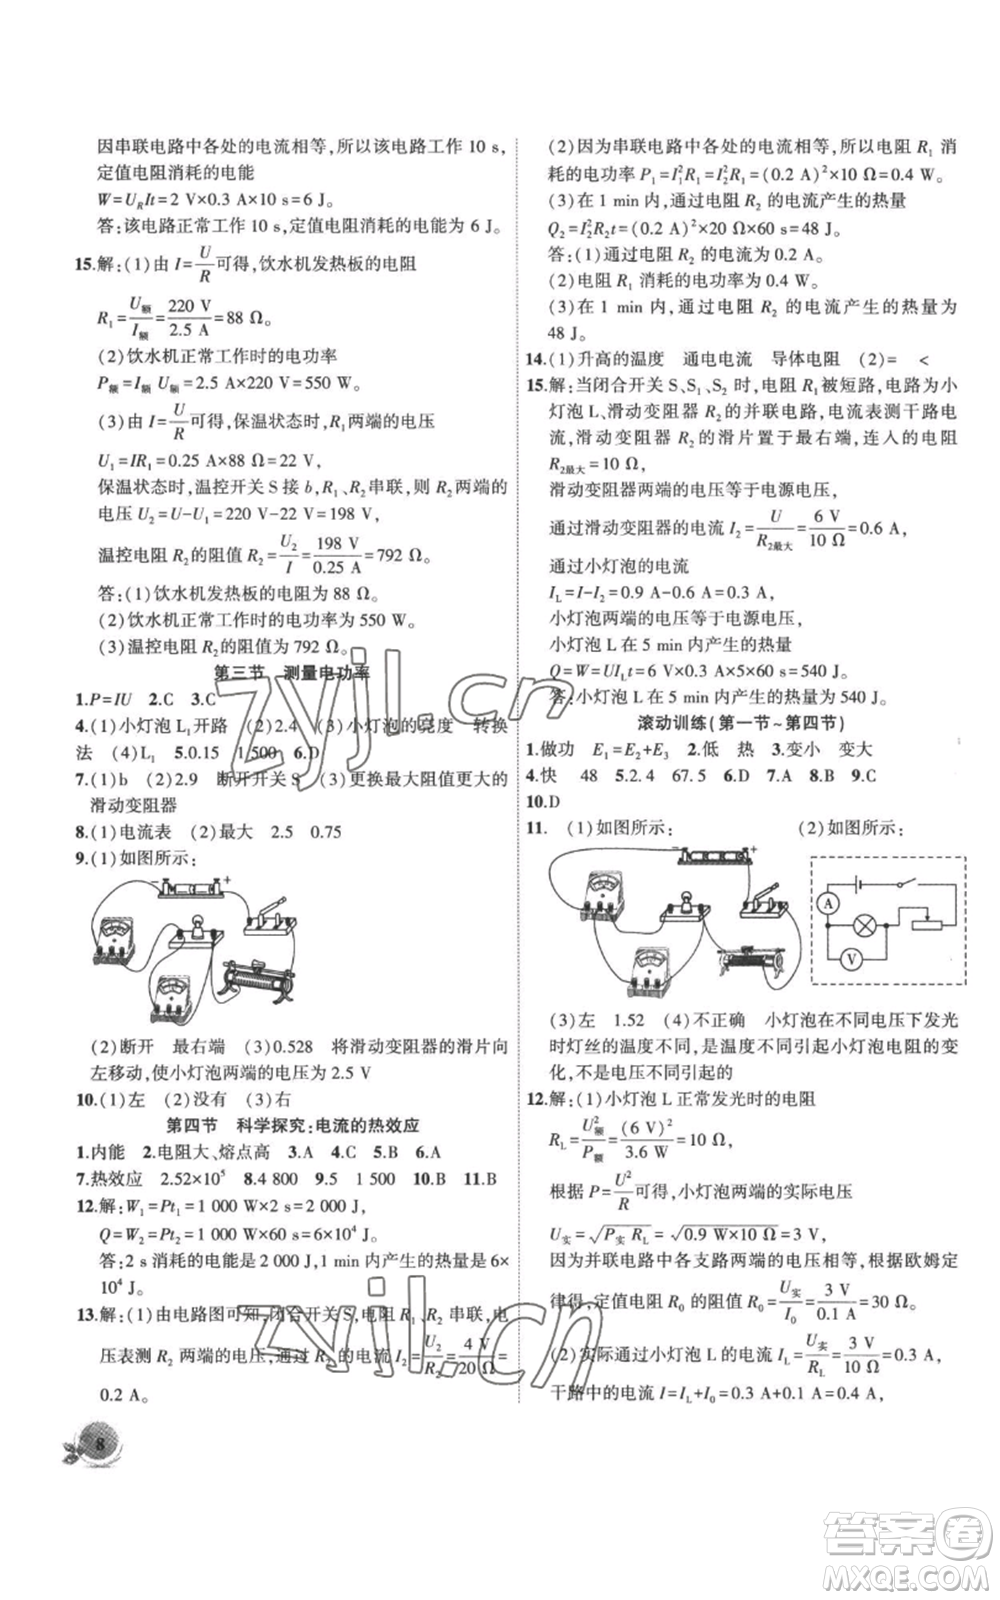 因串联电路中各处的电流相等,所以该电路工作 10 s,
定值电阻消耗的电能
W=U_R It=2 V×0.3 A×10 s=6 J。
答:该电路正常工作 10 s,定值电阻消耗的电能为 6 J。
15.解:(1)由 I=U/R 可得,饮水机发热板的电阻
R₁=U额/I额=220 V/2.5 A=88 Ω。
(2)饮水机正常工作时的电功率
P额=I额 U额=2.5 A×220 V=550 W。
(3)由 I=U/R 可得,保温状态时,R₁两端的电压
U₁=IR₁=0.25 A×88 Ω=22 V,
保温状态时,温控开关 S 接 b,R₁、R₂串联,则 R₂两端的
电压 U₂=U-U₁=220 V-22 V=198 V,
温控电阻 R₂的阻值 R₂=U₂/I=198 V/0.25 A=792 Ω。
答:(1)饮水机发热板的电阻为 88 Ω。
(2)饮水机正常工作时的电功率为 550 W。
(3)温控电阻 R₂的阻值为 792 Ω。
第三节 测量电功率
1.P=IU 2.C 3.C
4.(1)小灯泡 L₁开路 (2)2.4 (3)小灯泡的亮度 转换
法 (4)L₁ 5.0.15 1 500 6.D
7.(1)b (2)2.9 断开开关 S (3)更换最大阻值更大的
滑动变阻器
8.(1)电流表 (2)最大 2.5 0.75
9.(1)如图所示:
- +
(2)断开 最右端 (3)0.528 将滑动变阻器的滑片向
左移动,使小灯泡两端的电压为 2.5 V
10.(1)左 (2)没有 (3)右
第四节 科学探究:电流的热效应
1.内能 2.电阻大、熔点高 3.A 4.C 5.B 6.A
7.热效应 2.52×10⁵ 8.4 800 9.5 1 500 10.B 11.B
12.解:W₁=Pt₁=1 000 W×2 s=2 000 J,
Q=W₂=Pt₂=1 000 W×60 s=6×10⁴ J。
答:2 s 消耗的电能是 2 000 J,1 min 内产生的热量是 6×
10⁴ J。
13.解:(1)由电路图可知,闭合开关 S,电阻 R₁、R₂ 串联,电
压表测 R₂ 两端的电压,通过 R₂ 的电流 I₂=U₂/R₂=4 V/20 Ω=
0.2 A。
8
(2)因为串联电路中各处的电流相等,所以电阻 R₁ 消
耗的电功率 P₁=I₁²R₁=I₂²R₁=(0.2 A)²×10 Ω=0.4 W。
(3)在 1 min 内,通过电阻 R₂ 的电流产生的热量
Q₂=I₂²R₂t=(0.2 A)²×20 Ω×60 s=48 J。
答:(1)通过电阻 R₂的电流为 0.2 A。
(2)电阻 R₁ 消耗的电功率为 0.4 W。
(3)在 1 min 内,通过电阻 R₂ 的电流产生的热量为
48 J。
14.(1)升高的温度 通电电流 导体电阻 (2)= <
15.解:当闭合开关 S、S₁、S₂ 时,电阻 R₁被短路,电路为小
灯泡 L、滑动变阻器 R₂的并联电路,电流表测干路电
流,滑动变阻器 R₂的滑片置于最右端,连入的电阻
R₂最大=10 Ω,
滑动变阻器两端的电压等于电源电压,
通过滑动变阻器的电流 I₂=U/R₂最大=6 V/10 Ω=0.6 A,
通过小灯泡的电流
I_L=I-I₂=0.9 A-0.6 A=0.3 A,
小灯泡两端的电压等于电源电压,
小灯泡 L 在 5 min 内产生的热量
Q=W=UI_Lt=6 V×0.3 A×5×60 s=540 J。
答:小灯泡 L 在 5 min 内产生的热量为 540 J。
滚动训练(第一节~第四节)
1.做功 E₁=E₂+E₃ 2.低 热 3.变小 变大
4.快 48 5.2.4 67.5 6.D 7.A 8.B 9.C
10.D
11. (1)如图所示: (2)如图所示:
- +
A
V
(3)左 1.52 (4)不正确 小灯泡在不同电压下发光
时灯丝的温度不同,是温度不同引起小灯泡电阻的变
化,不是电压不同引起的
12.解:(1)小灯泡 L 正常发光时的电阻
R_L=U额²/P额=(6 V)²/3.6 W=10 Ω,
根据 P=U²/R 可得,小灯泡两端的实际电压
U实=√(P实 R_L)=√(0.9 W×10 Ω)=3 V,
因为并联电路中各支路两端的电压相等,根据欧姆定
律得,定值电阻 R₀的阻值 R₀=U实/I₀=3 V/0.1 A=30 Ω。
(2)实际通过小灯泡 L 的电流 I_L=U实/R_L=3 V/10 Ω=0.3 A,
干路中的电流 I=I_L+I₀=0.3 A+0.1 A=0.4 A,
zyjl.cn
zyjl.cn
答案圈
MXQE.COM